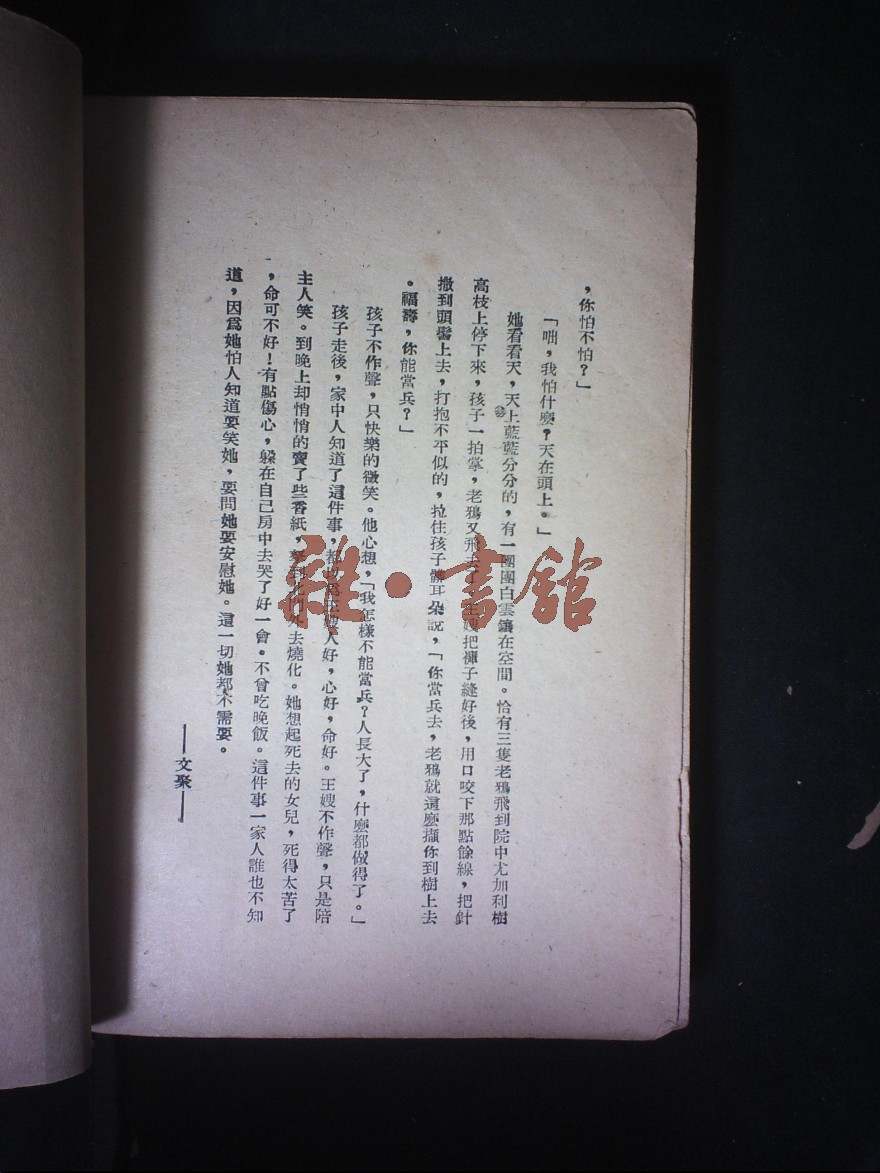 ，你怕不怕？」
「咄，我怕什麼？天在頭上。」
她看看天，天上藍藍分分的，有一團團白雲鑲在空間。恰有三隻老鴉飛到院中尤加利樹
高枝上停下來，孩子一拍掌，老鴉又飛去了。王嫂把褲子縫好後，用口咬下那點餘線，把針
撇到頭髻上去，打抱不平似的，拉住孩子髒耳朵說，「你當兵去，老鴉就這麼擷你到樹上去
。福壽，你能當兵？」
孩子不作聲，只快樂的微笑。他心想，「我怎樣不能當兵？人長大了，什麼都做得了。」
孩子走後，家中人知道了這件事，都王嫂人好，心好，命好。王嫂不作聲，只是陪
主人笑。到晚上却悄悄的賣了些香紙，外去燒化。她想起死去的女兒，死得太苦了
，命可不好！有點傷心，躲在自己房中去哭了好一會。不曾吃晚飯。這件事一家人誰也不知
道，因爲她怕人知道要笑她，要問她要安慰她。這一切她都不需要。
——文聚——
雜·書館